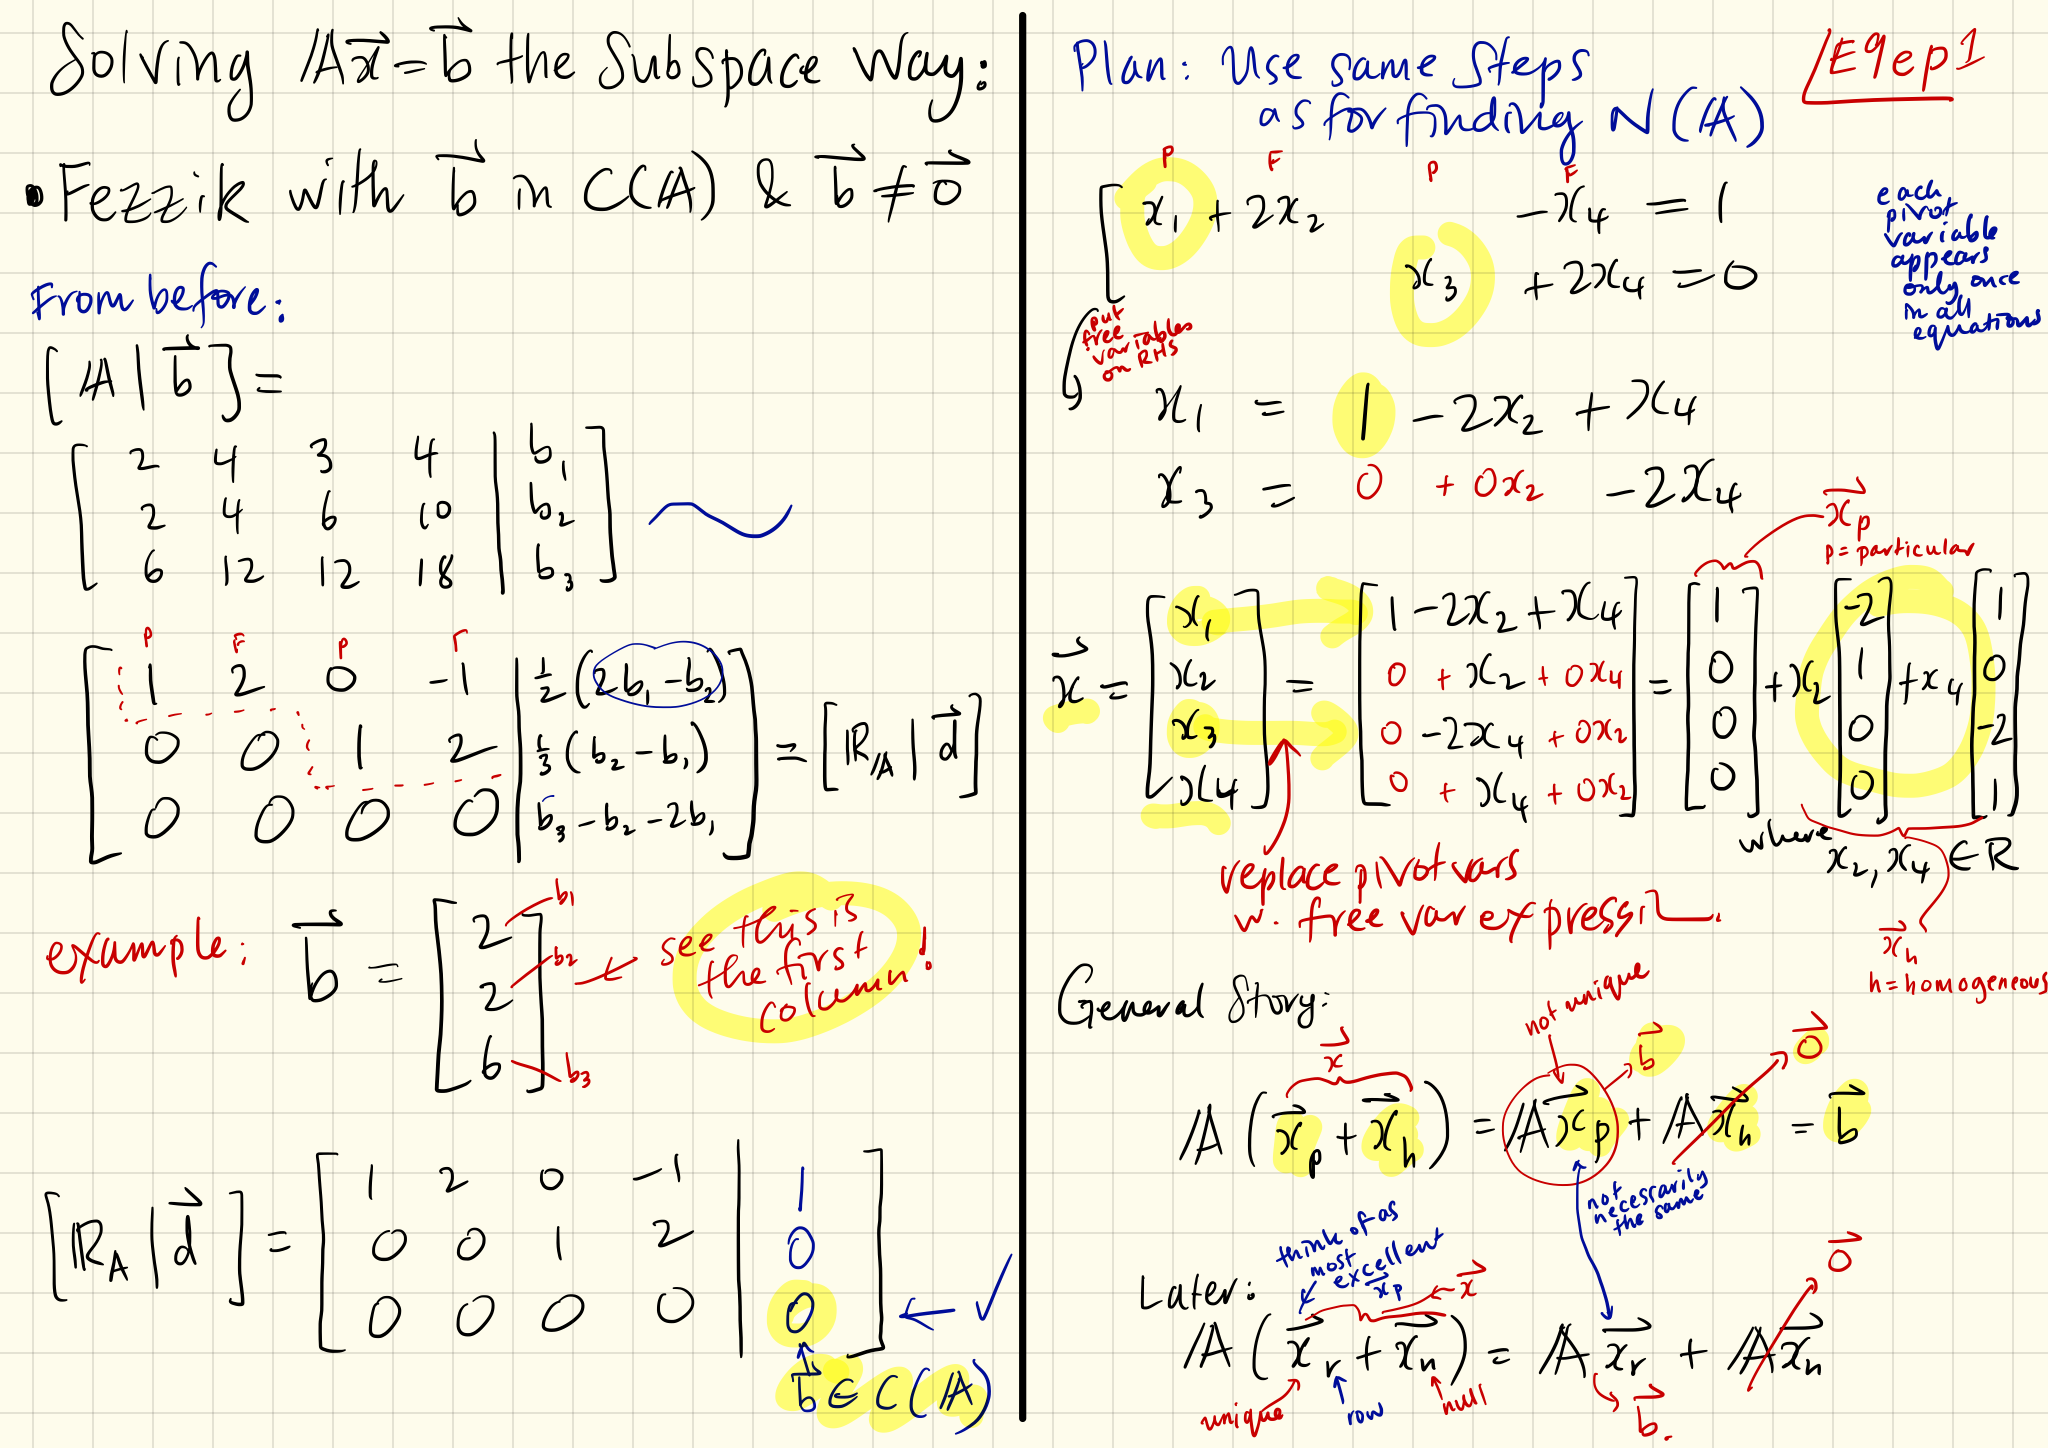 Solving 𝔸x⃗ = b⃗ the Subspace Way:
• Fezzik with b⃗ in C(𝔸) & b⃗ ≠ 0⃗
From before:
[𝔸 | b⃗] =
[2 4 3 4 | b₁]
[2 4 6 10 | b₂]
[6 12 12 18 | b₃] ~
P F P F
[1 2 0 -1 | ½(2b₁ - b₂)]
[0 0 1 2 | ⅓(b₂ - b₁)] = [ℝ_𝔸 | d⃗]
[0 0 0 0 | b₃ - b₂ - 2b₁]
example: b⃗ = [2 2 6] b₁ b₂ b₃
see this is
the first
column!
[ℝ_A | d⃗] =
[1 2 0 -1 | 1]
[0 0 1 2 | 0]
[0 0 0 0 | 0] ← ✓
b⃗ ∈ C(𝔸)
Plan: Use same steps
as for finding N(𝔸)
E9ep1
P F P F
x₁ + 2x₂ - x₄ = 1
x₃ + 2x₄ = 0
each
pivot
variable
appears
only once
in all
equations
put
free
variables
on RHS
x₁ = 1 - 2x₂ + x₄
x₃ = 0 + 0x₂ - 2x₄
x⃗p
p = particular
x⃗ = [x₁ x₂ x₃ x₄] = [1 - 2x₂ + x₄
0 + x₂ + 0x₄
0 - 2x₄ + 0x₂
0 + x₄ + 0x₂] = [1 0 0 0] + x₂ [-2 1 0 0] + x₄ [1 0 -2 1]
where
x₂, x₄ ∈ R
replace pivot vars
w. free var expressi
x⃗h
h = homogeneous
General Story:
not unique
x⃗ b⃗ 0⃗
𝔸(x⃗p + x⃗h) = 𝔸x⃗p + 𝔸x⃗h = b⃗
not
necessarily
the same
think of as
most
excellent
x⃗p
x⃗
0⃗
Later:
𝔸(x⃗r + x⃗n) = 𝔸x⃗r + 𝔸x⃗n
unique row null b⃗.